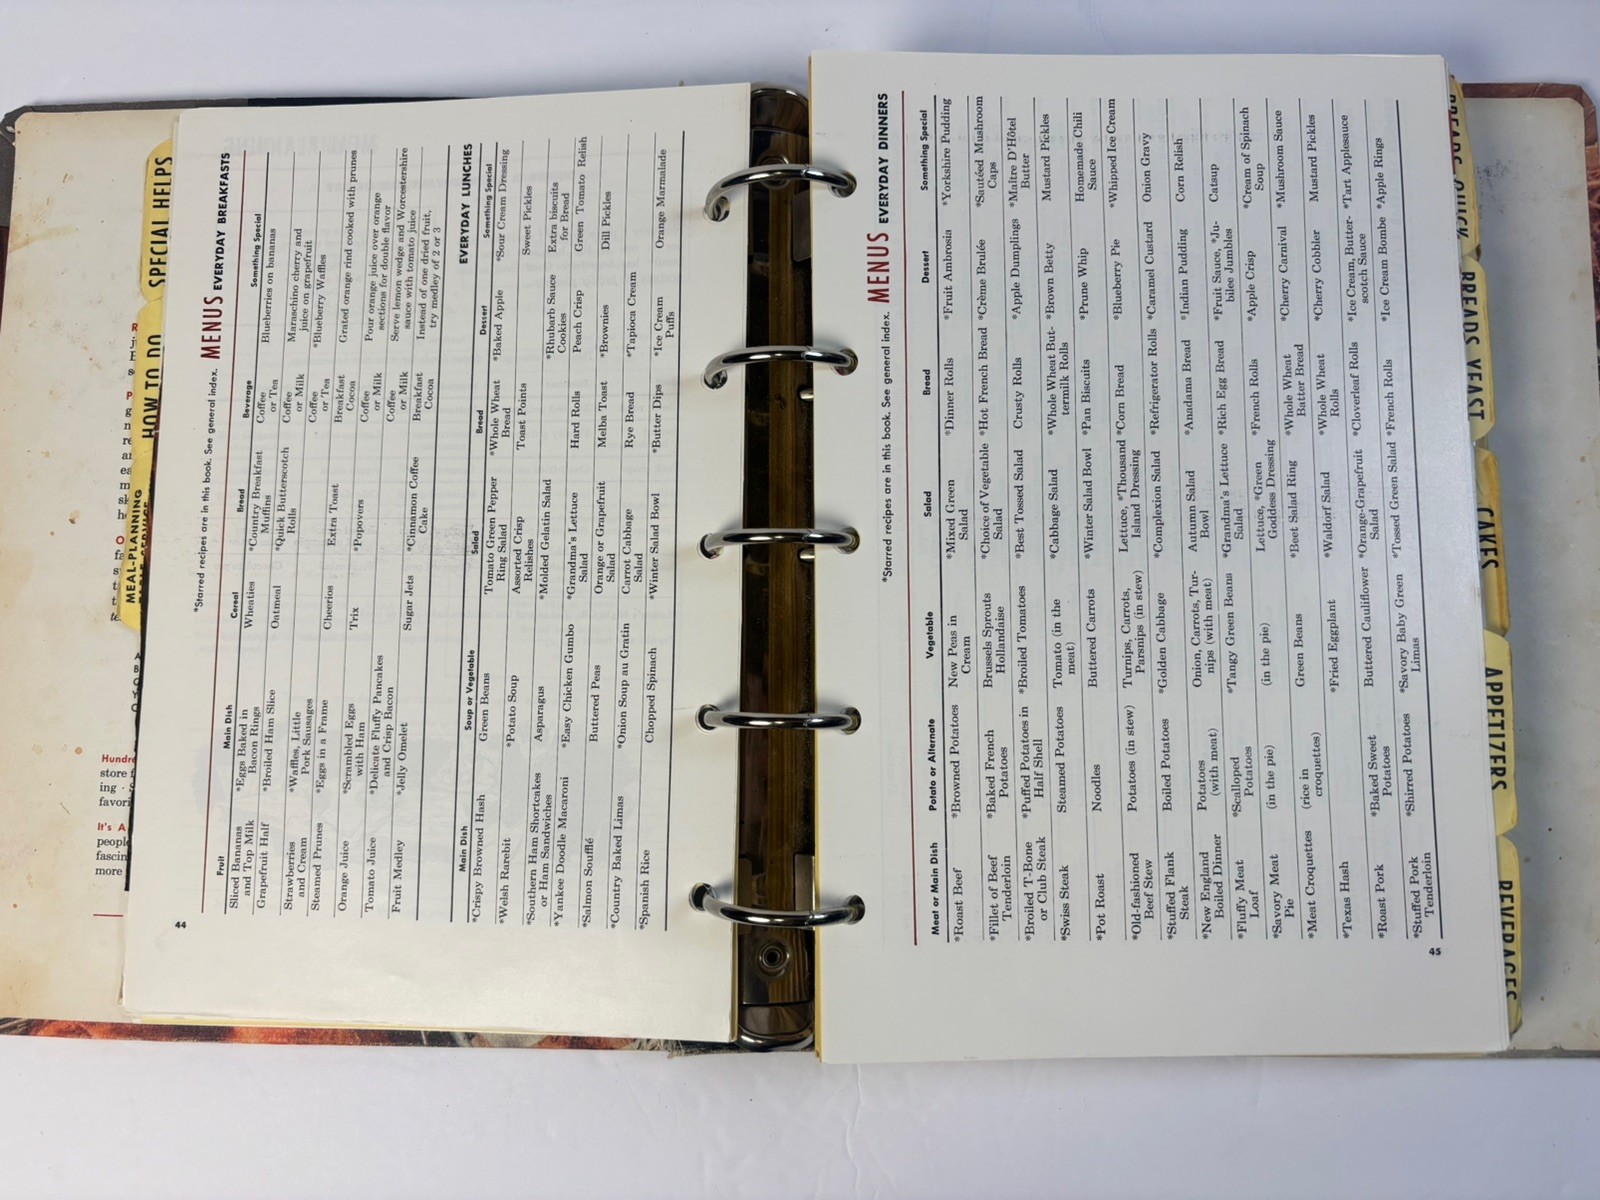 *Starred recipes are in this book. See general index. MENUS EVERYDAY BREAKFASTS
Fruit Main Dish Cereal Bread Beverage Something Special
Sliced Bananas *Eggs Baked in Wheaties *Country Breakfast Coffee Blueberries on bananas
and Top Milk Bacon Rings Muffins or Tea
Grapefruit Half *Broiled Ham Slice Oatmeal *Quick Butterscotch Coffee Maraschino cherry and
Rolls or Milk juice on grapefruit
Strawberries *Waffles, Little Coffee *Blueberry Waffles
and Cream Pork Sausages or Tea
Steamed Prunes *Eggs in a Frame Cheerios Extra Toast Breakfast Grated orange rind cooked with prunes
Cocoa
Orange Juice *Scrambled Eggs Trix *Popovers Coffee Pour orange juice over orange
with Ham or Milk sections for double flavor
Tomato Juice *Delicate Fluffy Pancakes Coffee Serve lemon wedge and Worcestershire
and Crisp Bacon or Milk sauce with tomato juice
Fruit Medley *Jelly Omelet Sugar Jets *Cinnamon Coffee Breakfast Instead of one dried fruit,
Cake Cocoa try medley of 2 or 3
EVERYDAY LUNCHES
Main Dish Soup or Vegetable Salad Bread Dessert Something Special
*Crispy Browned Hash Green Beans Tomato Green Pepper *Whole Wheat *Baked Apple *Sour Cream Dressing
Ring Salad Bread
*Welsh Rarebit *Potato Soup Assorted Crisp Toast Points Sweet Pickles
Relishes
*Southern Ham Shortcakes Asparagus *Molded Gelatin Salad *Rhubarb Sauce Extra biscuits
or Ham Sandwiches Cookies for Bread
*Yankee Doodle Macaroni *Easy Chicken Gumbo *Grandma's Lettuce Hard Rolls Peach Crisp Green Tomato Relish
Salad
*Salmon Soufflé Buttered Peas Orange or Grapefruit Melba Toast *Brownies Dill Pickles
Salad
*Country Baked Limas *Onion Soup au Gratin Carrot Cabbage Rye Bread *Tapioca Cream
Salad
*Spanish Rice Chopped Spinach *Winter Salad Bowl *Butter Dips *Ice Cream Orange Marmalade
Puffs
44
*Starred recipes are in this book. See general index. MENUS EVERYDAY DINNERS
Meat or Main Dish Potato or Alternate Vegetable Salad Bread Dessert Something Special
*Roast Beef *Browned Potatoes New Peas in *Mixed Green *Dinner Rolls *Fruit Ambrosia *Yorkshire Pudding
Cream Salad
*Fillet of Beef *Baked French Brussels Sprouts *Choice of Vegetable *Hot French Bread *Crème Brulée *Sautéed Mushroom
Tenderloin Potatoes Hollandaise Salad Caps
*Broiled T-Bone *Puffed Potatoes in *Broiled Tomatoes *Best Tossed Salad Crusty Rolls *Apple Dumplings *Maître D'Hôtel
or Club Steak Half Shell Butter
*Swiss Steak Steamed Potatoes Tomato (in the *Cabbage Salad *Whole Wheat But- *Brown Betty Mustard Pickles
meat) termilk Rolls
*Pot Roast Noodles Buttered Carrots *Winter Salad Bowl *Pan Biscuits *Prune Whip Homemade Chili
Sauce
*Old-fashioned Potatoes (in stew) Turnips, Carrots, Lettuce, *Thousand *Corn Bread *Blueberry Pie *Whipped Ice Cream
Beef Stew Parsnips (in stew) Island Dressing
*Stuffed Flank Boiled Potatoes *Golden Cabbage *Complexion Salad *Refrigerator Rolls *Caramel Custard Onion Gravy
Steak
*New England Potatoes Onion, Carrots, Tur- Autumn Salad *Anadama Bread *Indian Pudding Corn Relish
Boiled Dinner (with meat) nips (with meat) Bowl
*Fluffy Meat *Scalloped *Tangy Green Beans *Grandma's Lettuce *Rich Egg Bread *Fruit Sauce, *Ju- Catsup
Loaf Potatoes Salad bilee Jumbles
*Savory Meat (in the pie) (in the pie) Lettuce, *Green *French Rolls *Apple Crisp *Cream of Spinach
Pie Goddess Dressing Soup
*Meat Croquettes (rice in Green Beans *Beet Salad Ring *Whole Wheat *Cherry Carnival *Mushroom Sauce
croquettes) Batter Bread
*Texas Hash *Fried Eggplant *Waldorf Salad *Whole Wheat *Cherry Cobbler Mustard Pickles
Rolls
*Roast Pork *Baked Sweet Buttered Cauliflower *Orange-Grapefruit *Cloverleaf Rolls *Ice Cream, Butter- *Tart Applesauce
Potatoes Salad scotch Sauce
*Stuffed Pork *Shirred Potatoes *Savory Baby Green *Tossed Green Salad *French Rolls *Ice Cream Bombe *Apple Rings
Tenderloin Limas
45
SPECIAL HELPS
HOW TO DO
MEAL-PLANNING
BREADS, QUICK
BREADS, YEAST
CAKES
APPETIZERS
BEVERAGES
Hundre
store f
ing
favori
It's A
people
fascin
more